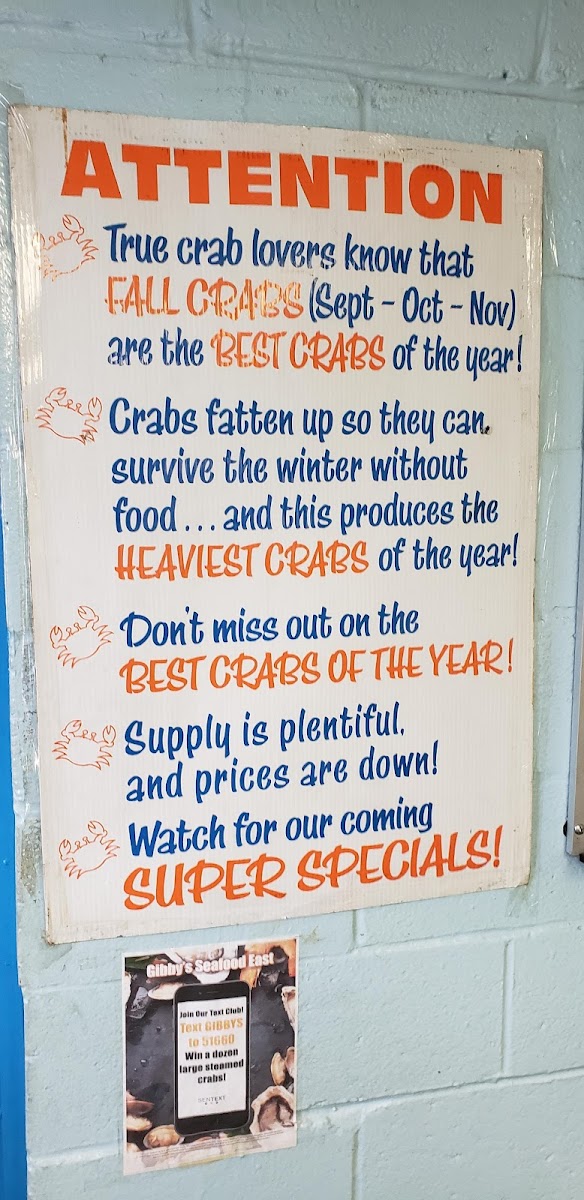 ATTENTION
True crab lovers know that
FALL CRABS (Sept - Oct - Nov)
are the BEST CRABS of the year!
Crabs fatten up so they can
survive the winter without
food ... and this produces the
HEAVIEST CRABS of the year!
Don't miss out on the
BEST CRABS OF THE YEAR!
Supply is plentiful,
and prices are down!
Watch for our coming
SUPER SPECIALS!
Gibby's Seafood East
Join Our Text Club!
Text GIBBYS
to 51660
Win a dozen
large steamed
crabs!